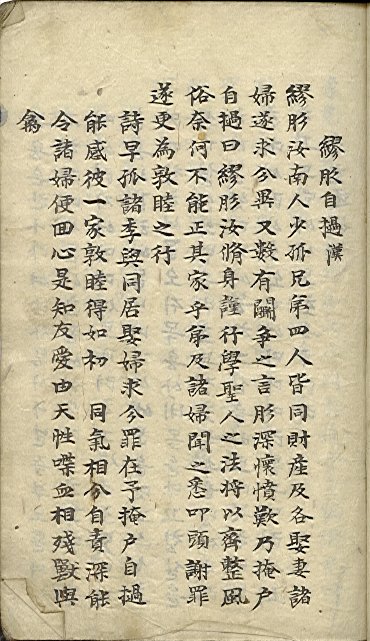 繆肜自撾 漢
繆肜汝南人少孤兄弟四人皆同財産及各娶妻諸
婦遂求分異又數有鬪爭之言肜深懷憤歎乃掩戶
自撾曰繆肜汝脩身謹行學聖人之法將以齊整風
俗奈何不能正其家乎弟及諸婦聞之悉叩頭謝罪
遂更為敦睦之行
詩早孤諸季與同居娶婦求分罪在予掩戶自撾
能感彼一家敦睦得如初 同氣相分自責深能
令諸婦便回心是知友愛由天性喋血相殘獸與
禽